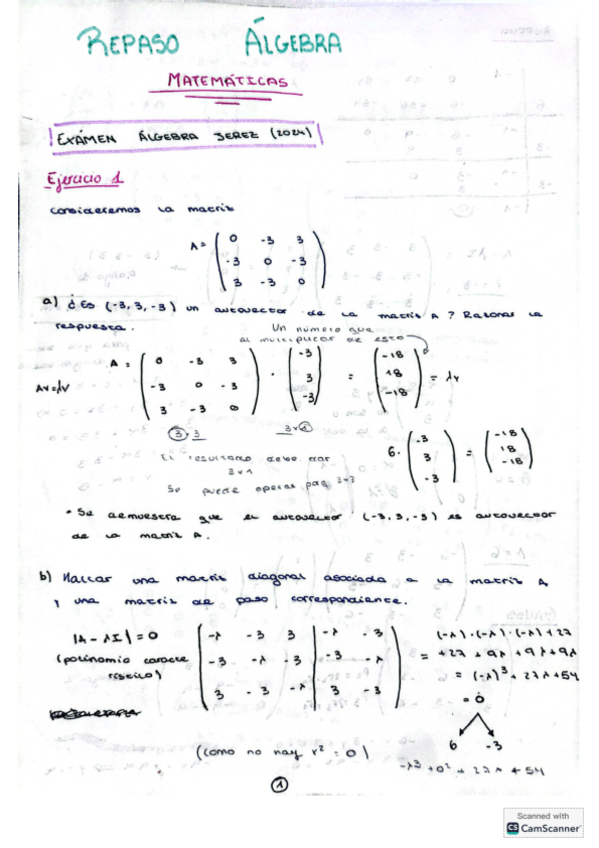 REPASO ÁLGEBRA
MATEMÁTICAS
EXÁMEN ÁLGEBRA JEREZ (2024)
Ejercicio 1
consideremos la matriz
A = ( 0 -3 3
-3 0 -3
3 -3 0 )
a) ¿Es (-3, 3, -3) un autovector de la matriz A? Razonar la
respuesta.
Un número que
al multiplicar de esto
A = ( 0 -3 3
-3 0 -3
3 -3 0 ) · ( -3
3
-3 ) = ( -18
18
-18 ) = λv
Av=λv
3×3 3×1
El resultado debe dar
3×1
Se puede operar paq 3=3
6· ( -3
3
-3 ) = ( -18
18
-18 )
• Se demuestra que el autovector (-3, 3, -3) es autovector
de la matriz A.
b) Hallar una matriz diagonal asociada a la matriz A
y una matriz de paso correspondiente.
|A - λI| = 0
(polinomio caracte
rístico)
| -λ -3 3 | -λ -3
-3 -λ -3 | -3 -λ
3 -3 -λ | 3 -3 |
= (-λ)·(-λ)·(-λ)+27
+27 + 9λ + 9λ + 9λ
= (-λ)³ + 27λ + 54
= 0
6 -3
(como no hay x² = 0)
-λ³ + 0² + 27λ + 54
1
Scanned with
CS CamScanner